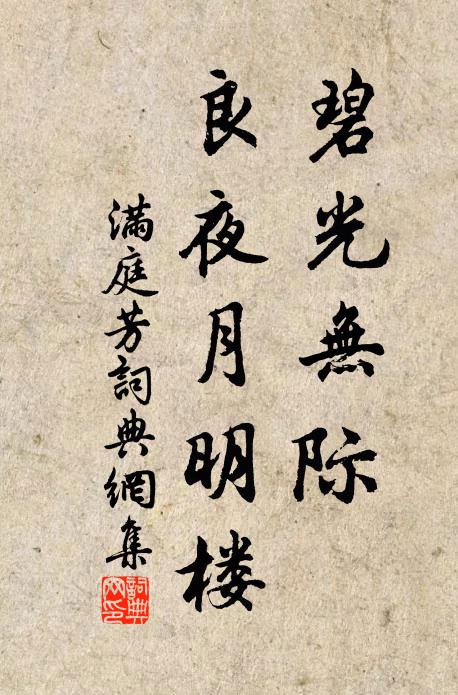 碧光無际
良夜月明楼
滿庭芳詞典網集
詞典
网印